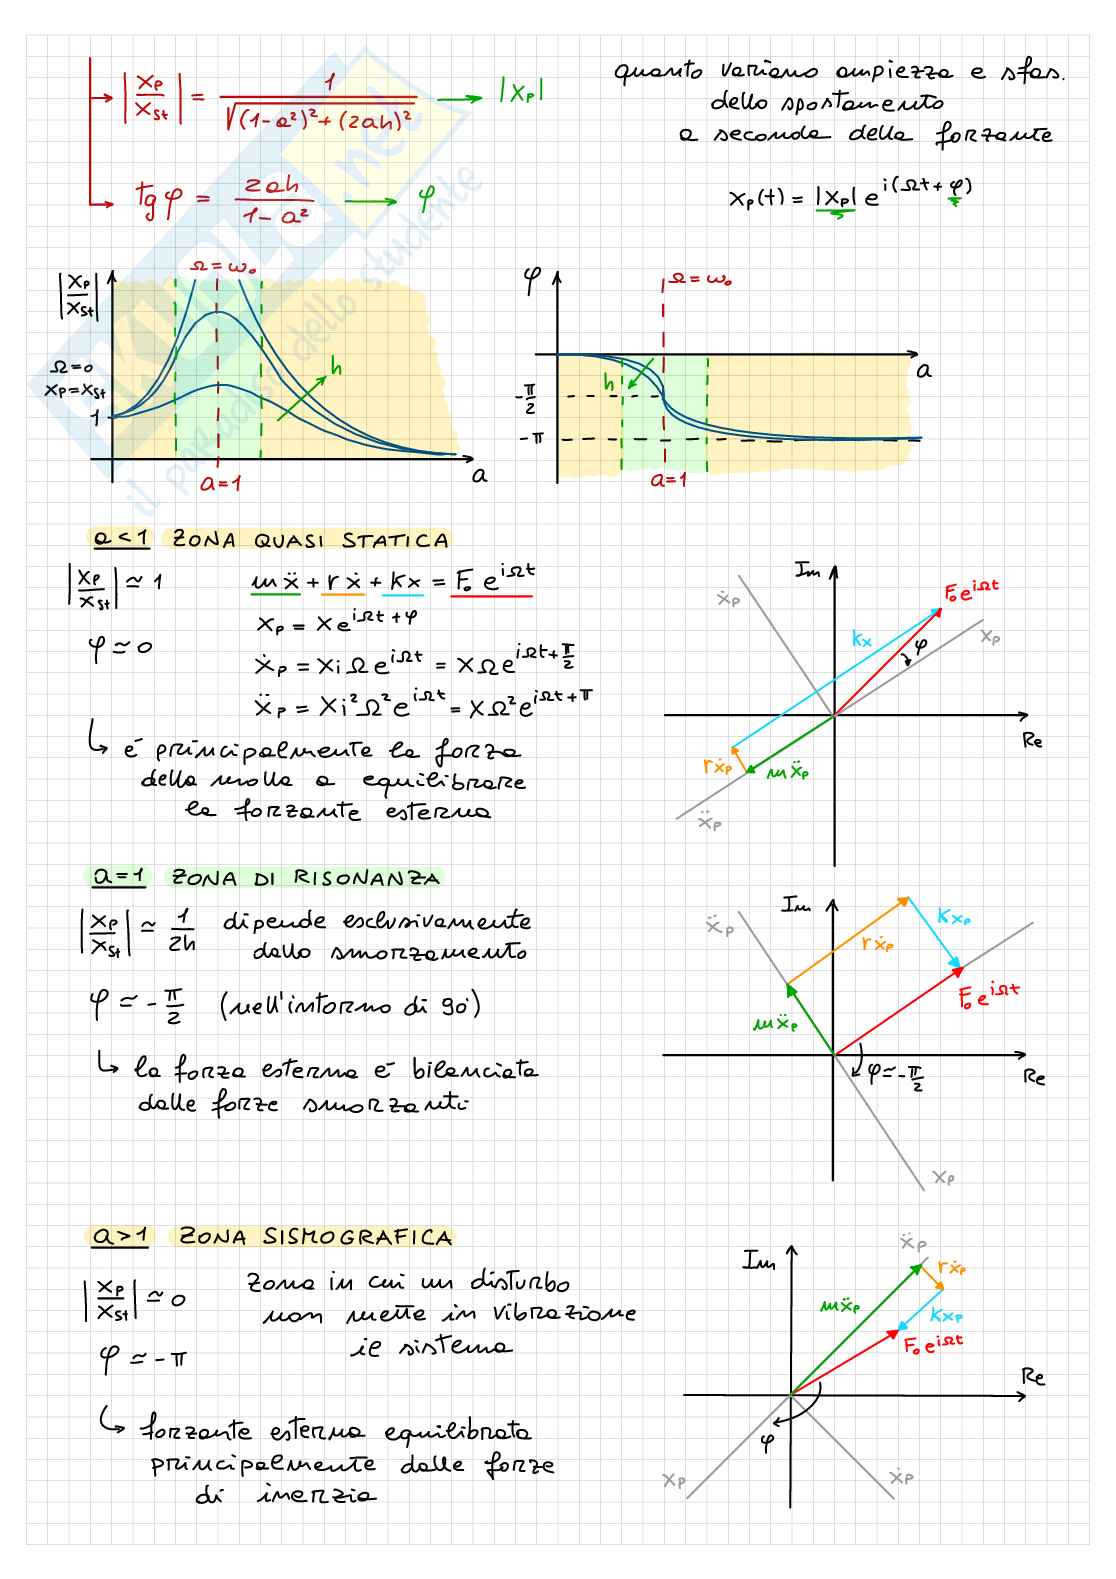 |xₚ/x_St| = 1/√((1-a²)² + (2ah)²) → |xₚ|
quanto variano ampiezza e sfas.
dello spostamento
a seconda della forzante
tg φ = 2ah/(1-a²) → φ
xₚ(t) = |xₚ| e^i(Ωt+φ)
SKUOLA.net
il paradiso dello studente
|xₚ/x_St|
Ω=ω₀
Ω=0
xₚ=x_St
1
h
a
a=1
φ
Ω=ω₀
a
h
-π/2
-π
a=1
a<1 ZONA QUASI STATICA
|xₚ/x_St| ≃ 1
mẍ + rẋ + kx = F₀ e^iΩt
φ ≃ 0
xₚ = x e^iΩt+φ
ẋₚ = x i Ω e^iΩt = xΩ e^iΩt+π/2
ẍₚ = x i² Ω² e^iΩt = xΩ² e^iΩt+π
↳ é principalmente la forza
della molla a equilibrare
la forzante esterna
Im
F₀ e^iΩt
ẋₚ
kx
φ
xₚ
Re
rẋₚ
mẍₚ
ẍₚ
a=1 ZONA DI RISONANZA
|xₚ/x_St| ≃ 1/2h dipende esclusivamente
dallo smorzamento
φ ≃ -π/2 (nell'intorno di 90)
↳ la forza esterna é bilanciata
dalle forze smorzanti
Im
ẍₚ
kxₚ
rẋₚ
F₀ e^iΩt
mẍₚ
φ≃-π/2
Re
xₚ
a>1 ZONA SISMOGRAFICA
|xₚ/x_St| ≃ 0
zona in cui un disturbo
non mette in vibrazione
il sistema
φ ≃ -π
↳ forzante esterna equilibrata
principalmente dalle forze
di inerzia
Im
ẍₚ
rẋₚ
mẍₚ
kxₚ
F₀ e^iΩt
Re
φ
xₚ
ẋₚ